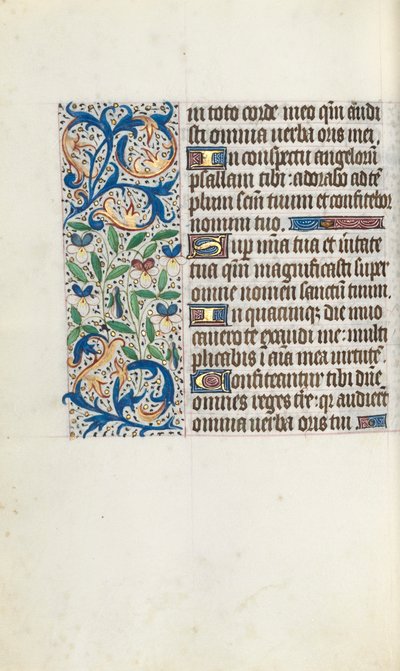 in toto corde meo qm̄ audi
sti omnia verba oris mei.
In conspectu angelorū
psallam tibi : adorabo ad tē
plum scm̄ tuum et confitebor
nomini tuo.
Sup mīa tua et ūitate
tua qm̄ magnificasti super
omne nomen sanctum tuum.
In quacumq; die inuo
cauero te exaudi me : multi
plicabis ī aīa mea uirtutē.
Confiteantur tibi dn̄e
omnes reges tr̄e : qr audierūt
omnia uerba oris tui.